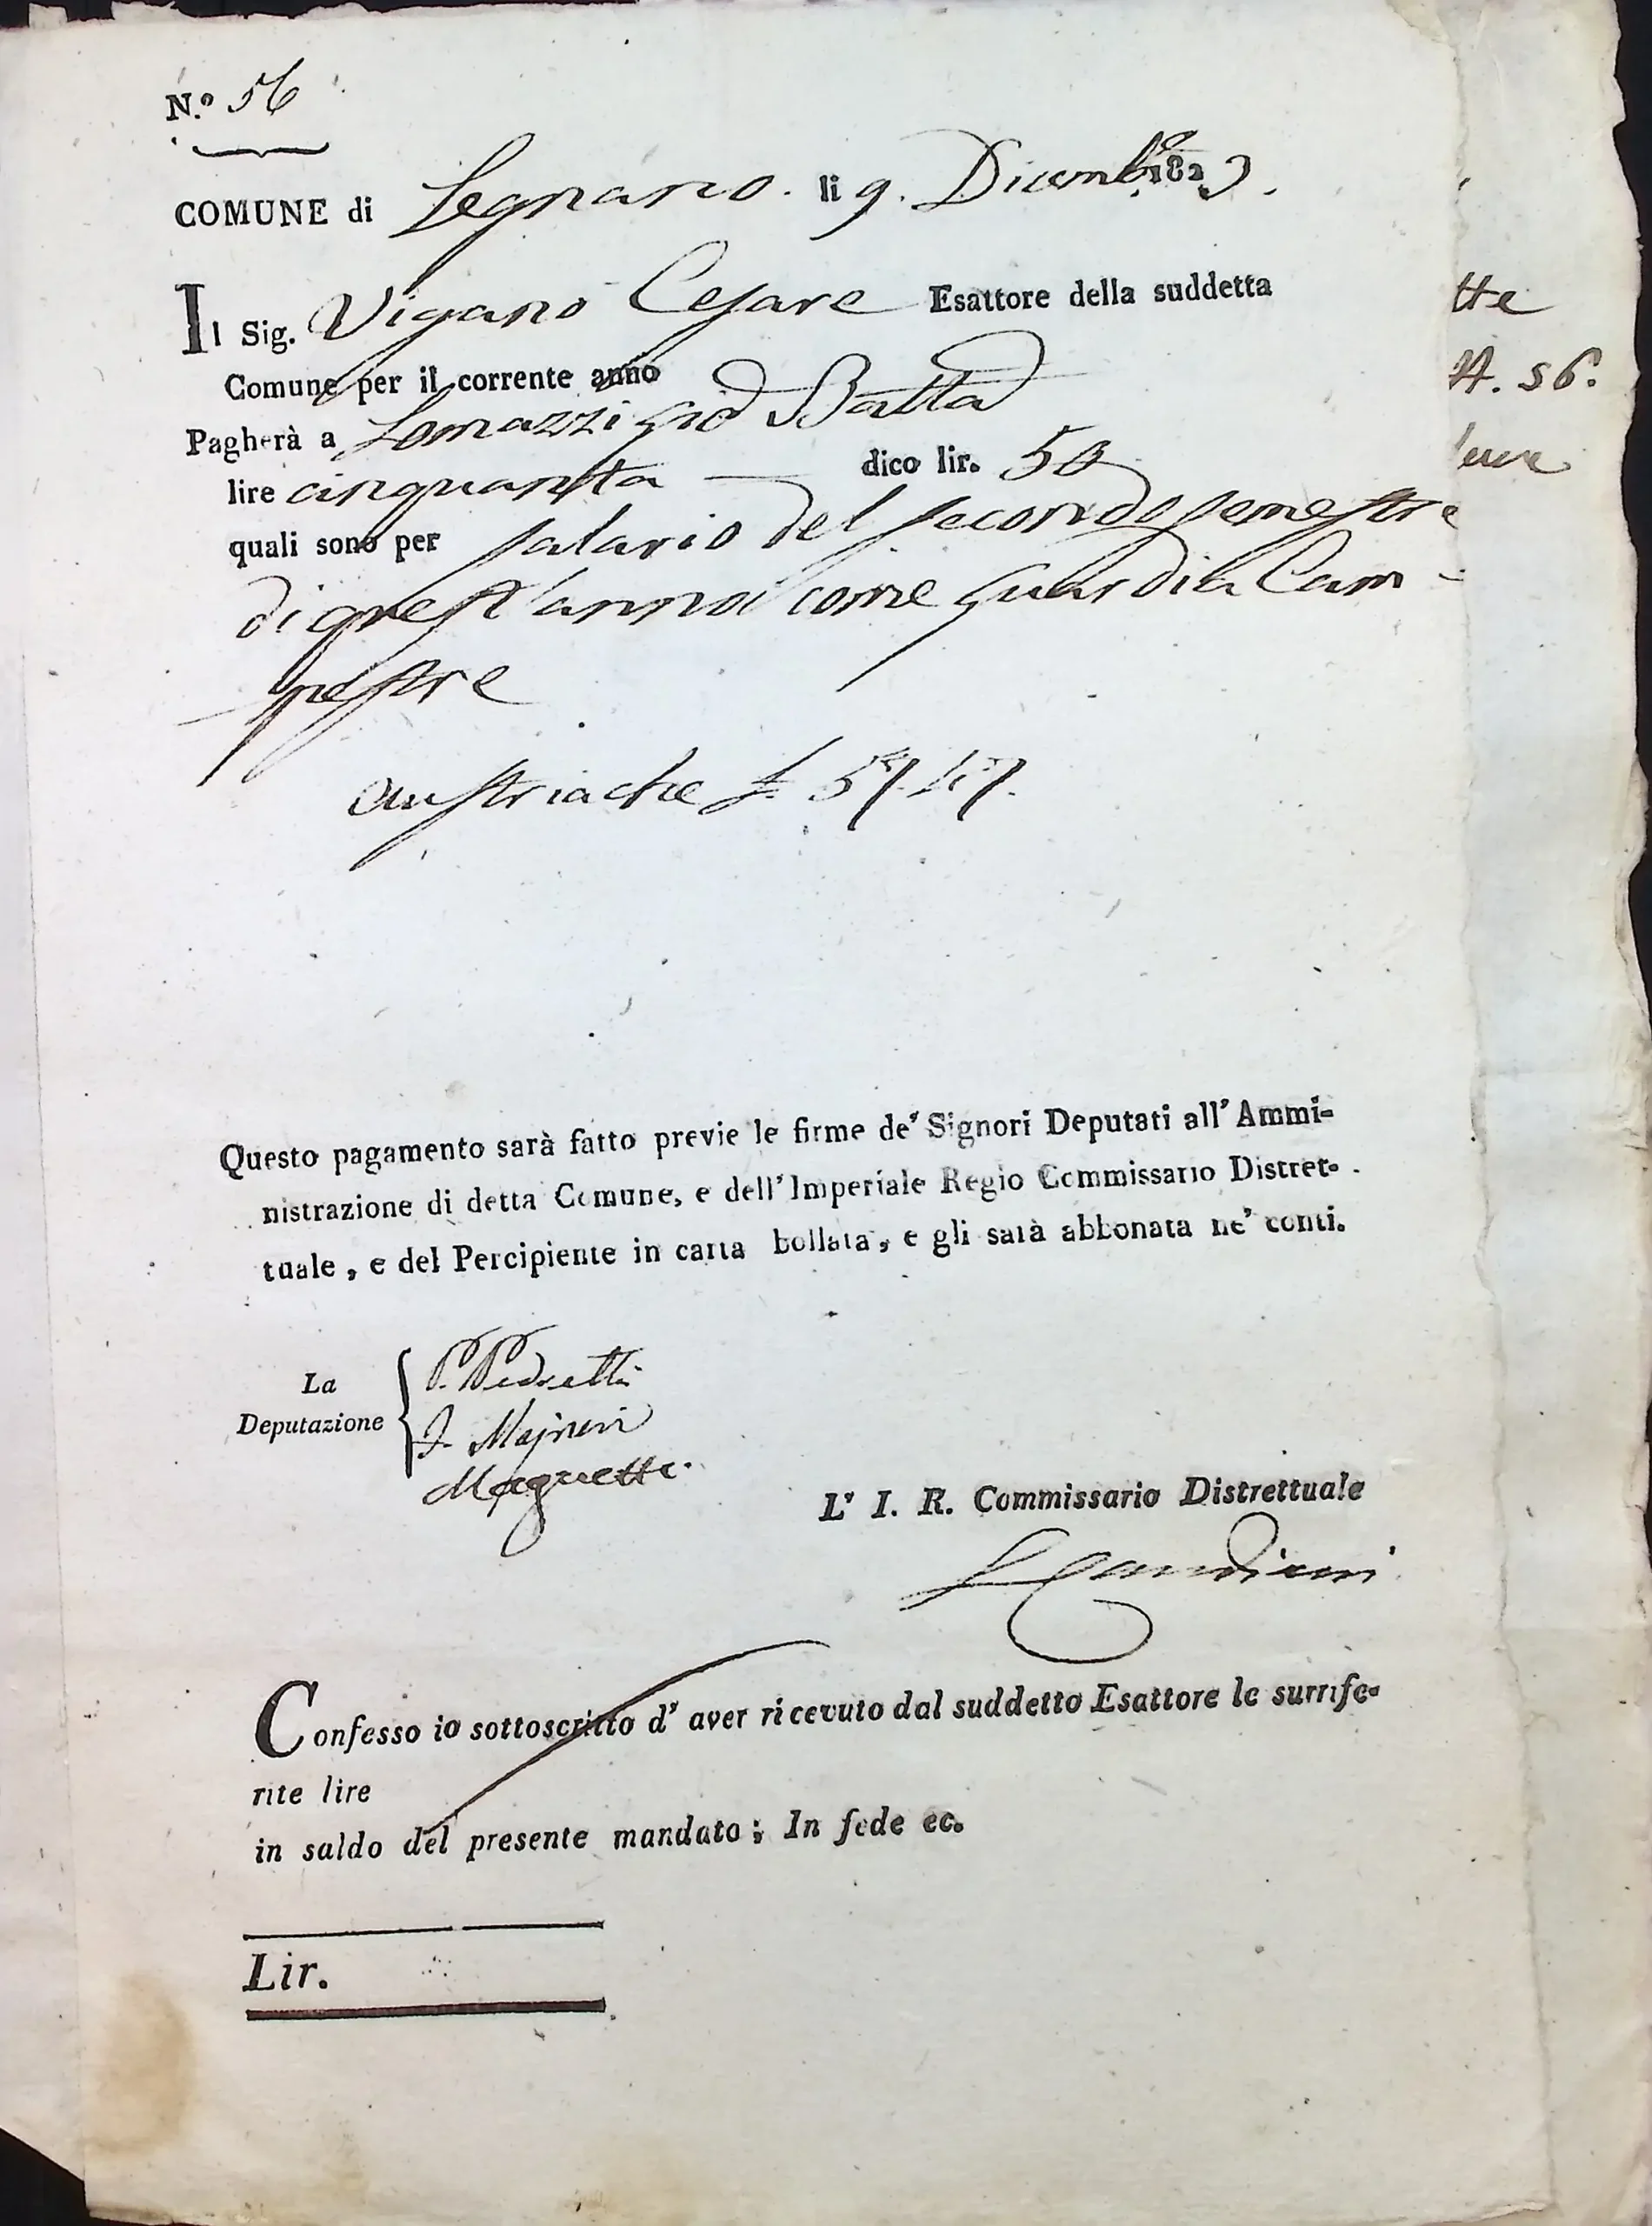 N.º 56
COMUNE di Legnano. li 9. Dicembre 1823.
Il Sig. Viganò Cesare Esattore della suddetta
Comune per il corrente anno
Pagherà a Lomazzi Gio Batta
lire cinquanta dico lir. 50
quali sono per salario del secondo semestre
di quest'anno come Guardia Cam-
pestre
austriache £ 57. 47.
Questo pagamento sarà fatto previe le firme de' Signori Deputati all' Ammi-
nistrazione di detta Comune, e dell' Imperiale Regio Commissario Distret-
tuale, e del Percipiente in carta bollata, e gli sarà abbonata ne' conti.
La
Deputazione
P. Pedretti
Maguetti
L' I. R. Commissario Distrettuale
Confesso io sottoscritto d' aver ricevuto dal suddetto Esattore le surrife-
rite lire
in saldo del presente mandato; In fede ec.
Lir.
tte
56.